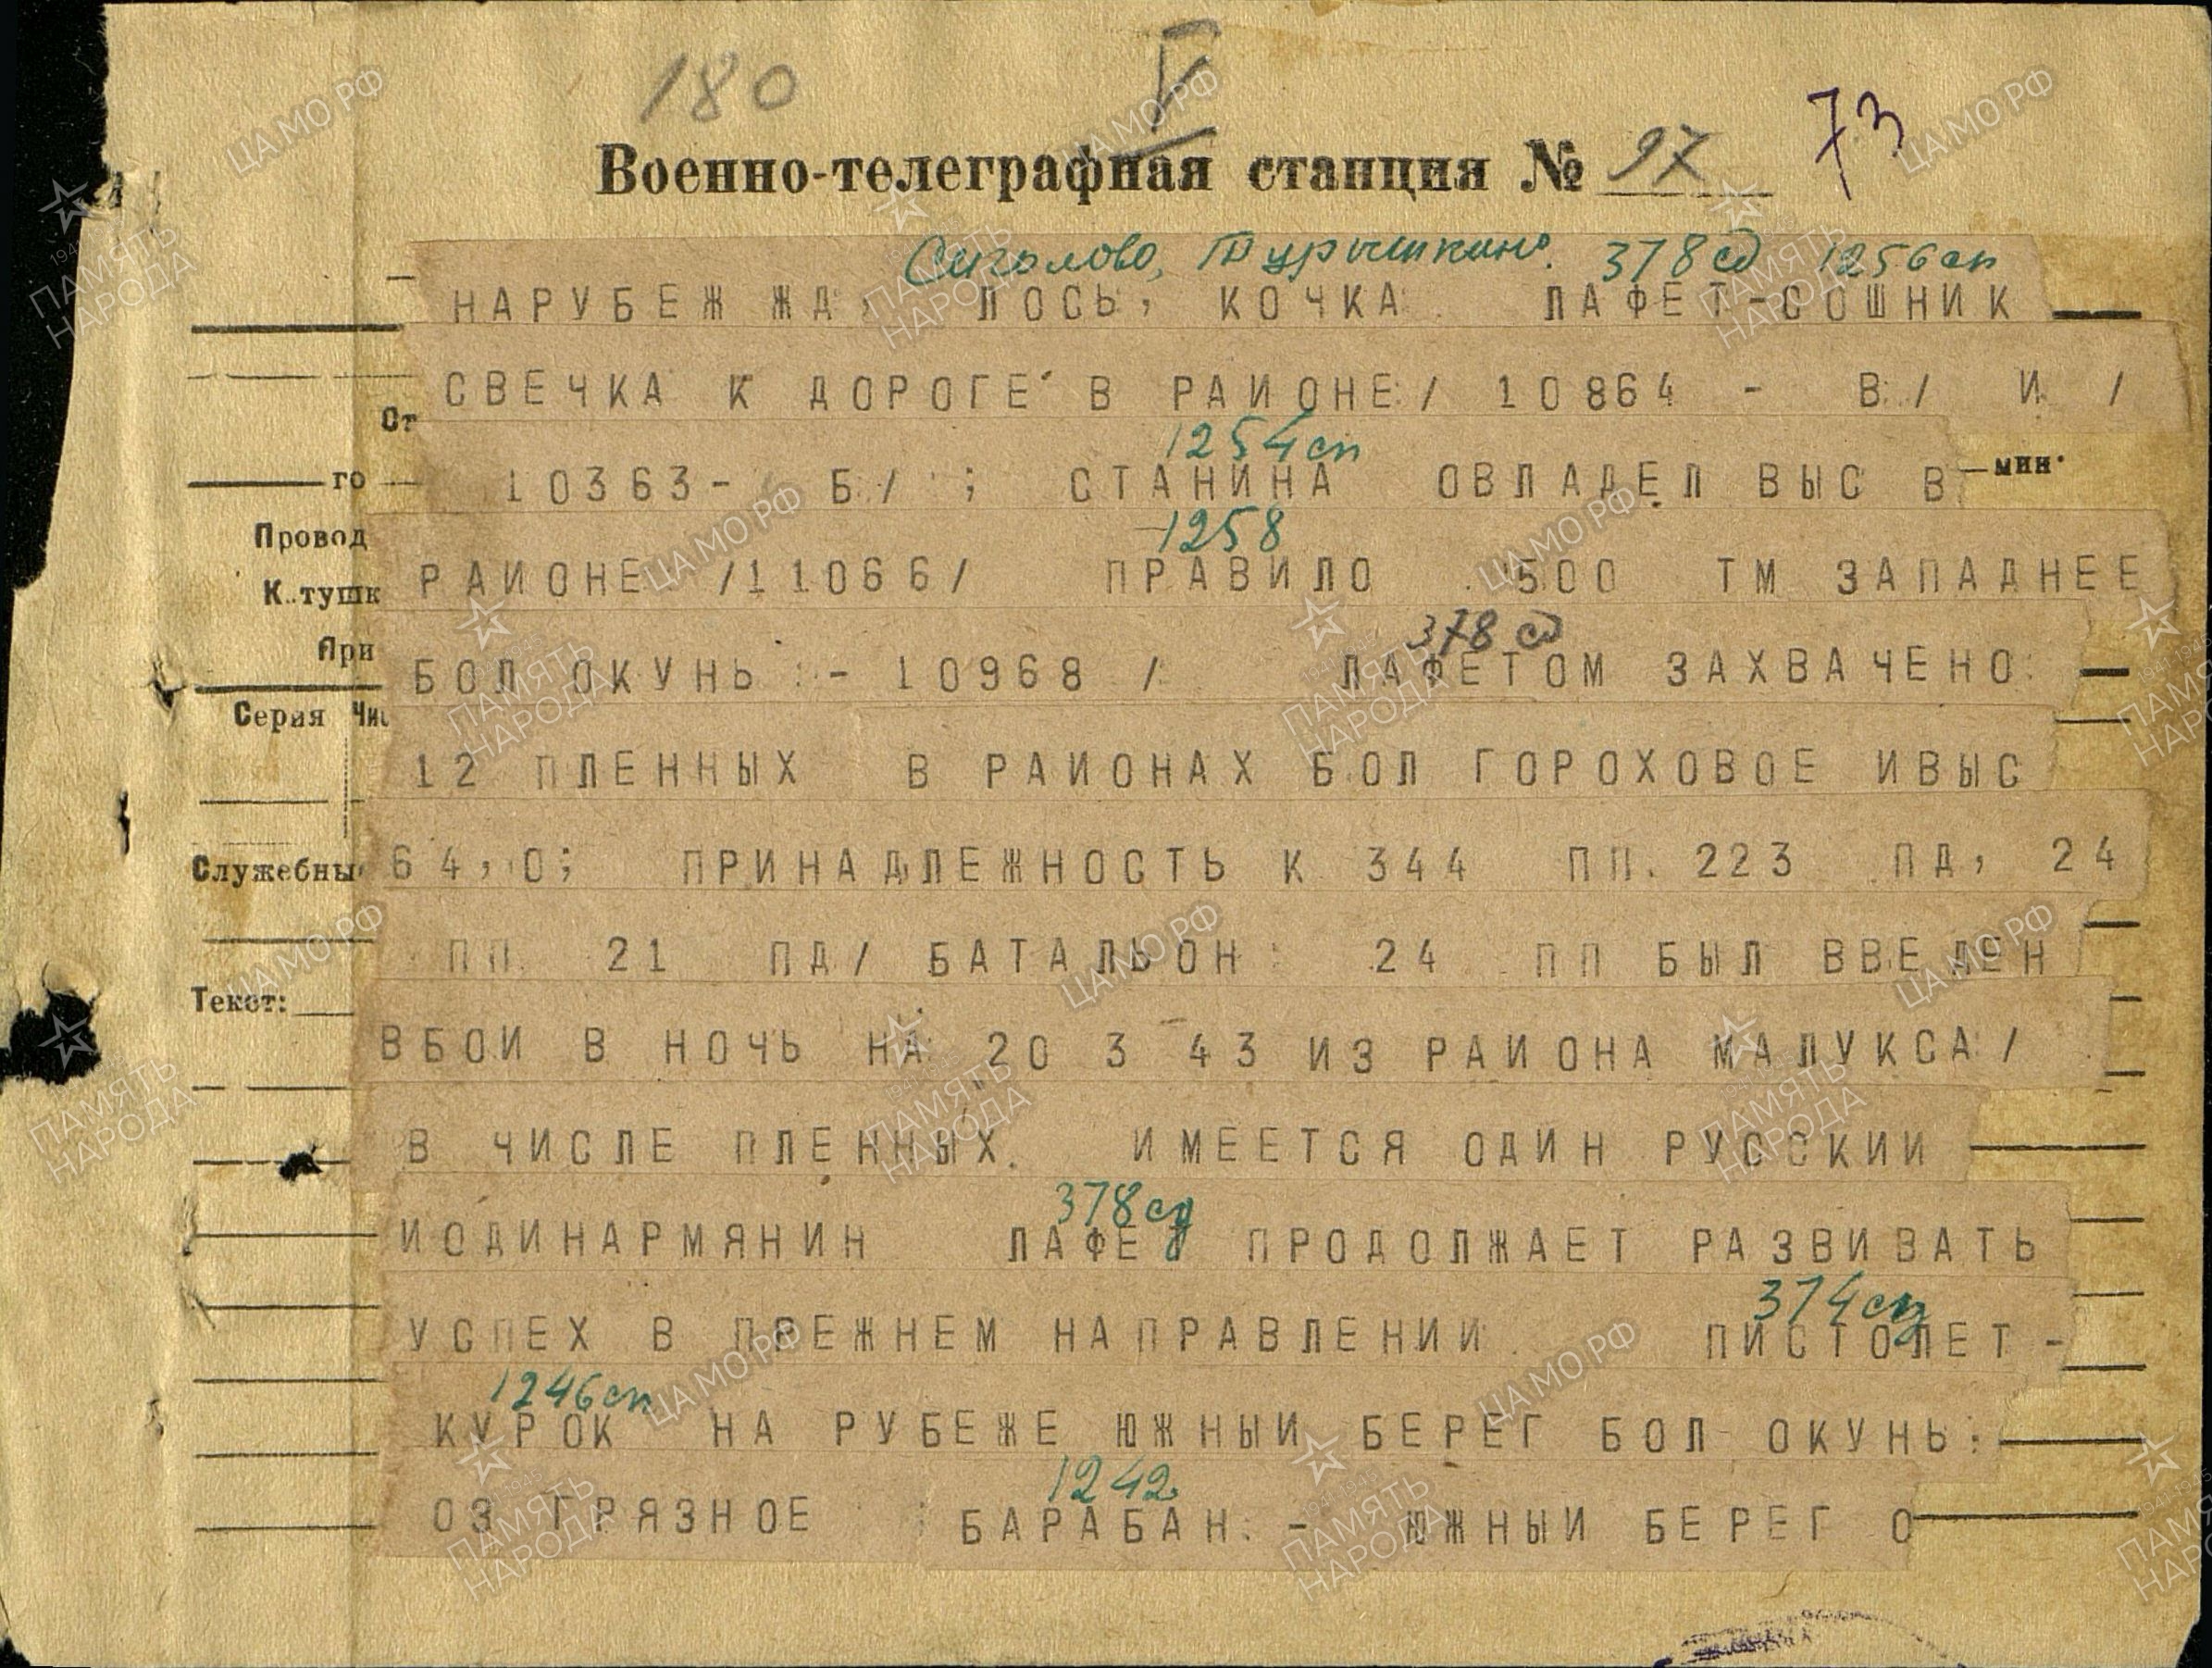 180 V
Военно-телеграфная станция № 97 73
Сиголово, Турышкино. 378 сд 1256 сп
НАРУБЕЖ ЖД, ЛОСЬ, КОЧКА. ЛАФЕТ-СОШНИК
СВЕЧКА К ДОРОГЕ В РАИОНЕ/ 10864 - В/ И /
От
1254 сп
го 10363- Б/ ; СТАНИНА ОВЛАДЕЛ ВЫС В мин.
1258
Провод
РАИОНЕ /11066/ ПРАВИЛО 500 ТМ ЗАПАДНЕЕ
К тушк
378 сд
При
БОЛ ОКУНЬ - 10968 / ЛАФЕТОМ ЗАХВАЧЕНО
Серия Чис
12 ПЛЕННЫХ В РАИОНАХ БОЛ ГОРОХОВОЕ ИВЫС
Служебны 64,0; ПРИНАДЛЕЖНОСТЬ К 344 ПП. 223 ПД, 24
ПП 21 ПД/ БАТАЛЬОН 24 ПП БЫЛ ВВЕДЕН
Текст:
ВБОИ В НОЧЬ НА 20 3 43 ИЗ РАИОНА МАЛУКСА/
В ЧИСЛЕ ПЛЕННЫХ. ИМЕЕТСЯ ОДИН РУССКИИ
378 сд
ИОДИНАРМЯНИН ЛАФЕТ ПРОДОЛЖАЕТ РАЗВИВАТЬ
374 сд
УСПЕХ В ПРЕЖНЕМ НАПРАВЛЕНИИ. ПИСТОЛЕТ-
1246 сп
КУРОК НА РУБЕЖЕ ЮЖНЫИ БЕРЕГ БОЛ ОКУНЬ.
1242
ОЗ ГРЯЗНОЕ ; БАРАБАН. - ЮЖНЫИ БЕРЕГ О
ЦАМО РФ
ПАМЯТЬ
НАРОДА